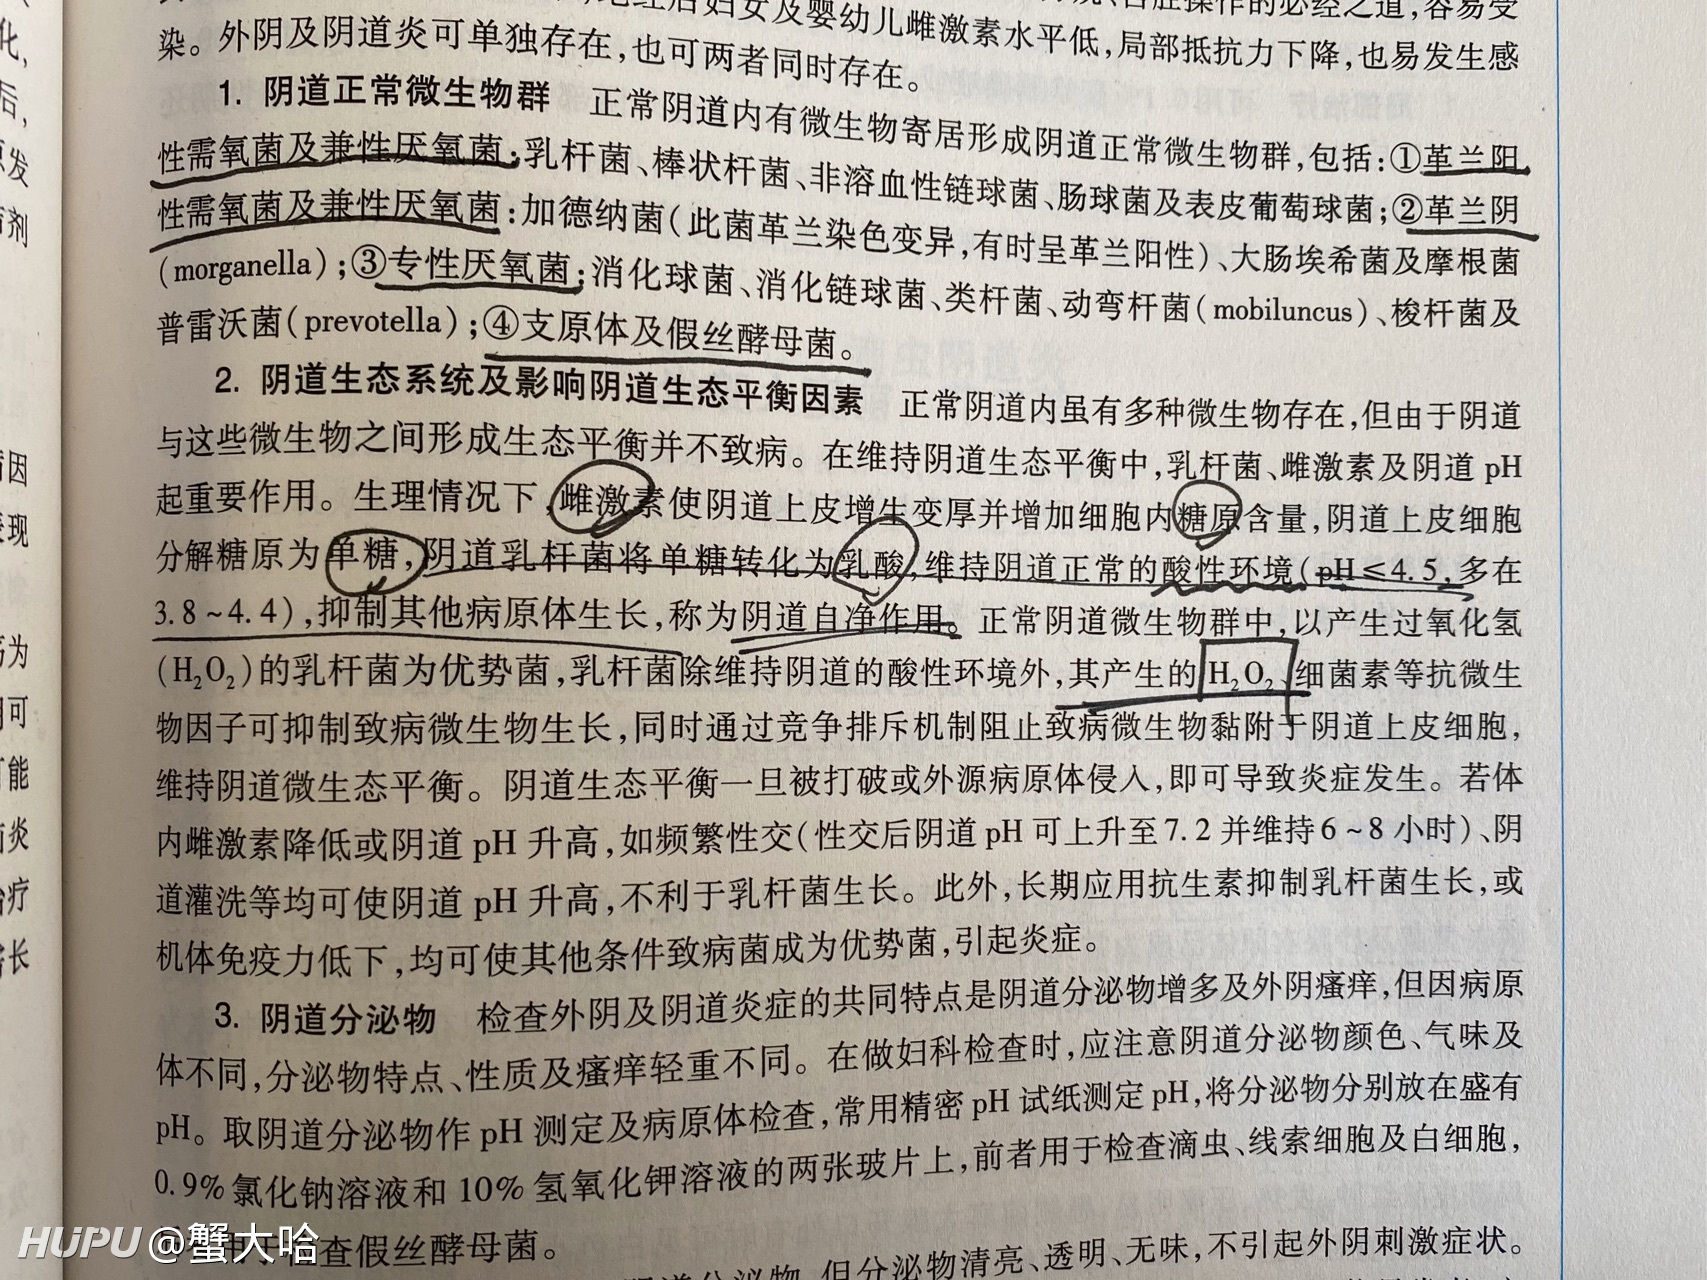 妇女及婴幼儿雌激素水平低,局部抵抗力下降,也易发生感
染。外阴及阴道炎可单独存在,也可两者同时存在。
1. 阴道正常微生物群 正常阴道内有微生物寄居形成阴道正常微生物群,包括:①革兰阳
性需氧菌及兼性厌氧菌:乳杆菌、棒状杆菌、非溶血性链球菌、肠球菌及表皮葡萄球菌;②革兰阴
性需氧菌及兼性厌氧菌:加德纳菌(此菌革兰染色变异,有时呈革兰阳性)、大肠埃希菌及摩根菌
(morganella);③专性厌氧菌:消化球菌、消化链球菌、类杆菌、动弯杆菌(mobiluncus)、梭杆菌及
普雷沃菌(prevotella);④支原体及假丝酵母菌。
2. 阴道生态系统及影响阴道生态平衡因素 正常阴道内虽有多种微生物存在,但由于阴道
与这些微生物之间形成生态平衡并不致病。在维持阴道生态平衡中,乳杆菌、雌激素及阴道 pH
起重要作用。生理情况下,雌激素使阴道上皮增生变厚并增加细胞内糖原含量,阴道上皮细胞
分解糖原为单糖,阴道乳杆菌将单糖转化为乳酸,维持阴道正常的酸性环境(pH≤4.5,多在
3.8~4.4),抑制其他病原体生长,称为阴道自净作用。正常阴道微生物群中,以产生过氧化氢
(H₂O₂)的乳杆菌为优势菌,乳杆菌除维持阴道的酸性环境外,其产生的 H₂O₂、细菌素等抗微生
物因子可抑制致病微生物生长,同时通过竞争排斥机制阻止致病微生物黏附于阴道上皮细胞,
维持阴道微生态平衡。阴道生态平衡一旦被打破或外源病原体侵入,即可导致炎症发生。若体
内雌激素降低或阴道 pH 升高,如频繁性交(性交后阴道 pH 可上升至7.2 并维持6~8 小时)、阴
道灌洗等均可使阴道 pH 升高,不利于乳杆菌生长。此外,长期应用抗生素抑制乳杆菌生长,或
机体免疫力低下,均可使其他条件致病菌成为优势菌,引起炎症。
3. 阴道分泌物 检查外阴及阴道炎症的共同特点是阴道分泌物增多及外阴瘙痒,但因病原
体不同,分泌物特点、性质及瘙痒轻重不同。在做妇科检查时,应注意阴道分泌物颜色、气味及
pH。取阴道分泌物作 pH 测定及病原体检查,常用精密 pH 试纸测定 pH,将分泌物分别放在盛有
0.9%氯化钠溶液和 10%氢氧化钾溶液的两张玻片上,前者用于检查滴虫、线索细胞及白细胞,
用于检查假丝酵母菌。
但分泌物清亮、透明、无味,不引起外阴刺激症状。
HUPU @蟹大哈